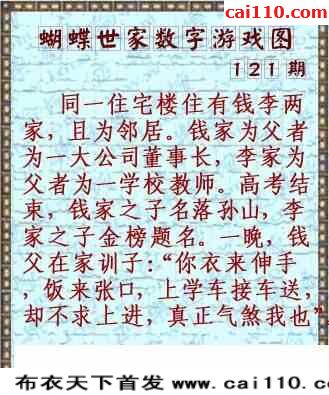 cai110.com
蝴蝶世家数字游戏图
121期
同一住宅楼住有钱李两
家，且为邻居。钱家为父者
为一大公司董事长，李家为
父者为一学校教师。高考结
束，钱家之子名落孙山，李
家之子金榜题名。一晚，钱
父在家训子：“你衣来伸手
，饭来张口，上学车接车送，
却不求上进，真正气煞我也”
布衣天下首发 www.cai110.com